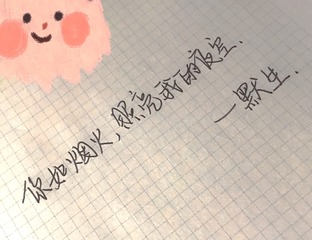 你如烟火，照亮我的夜空.
一默生.